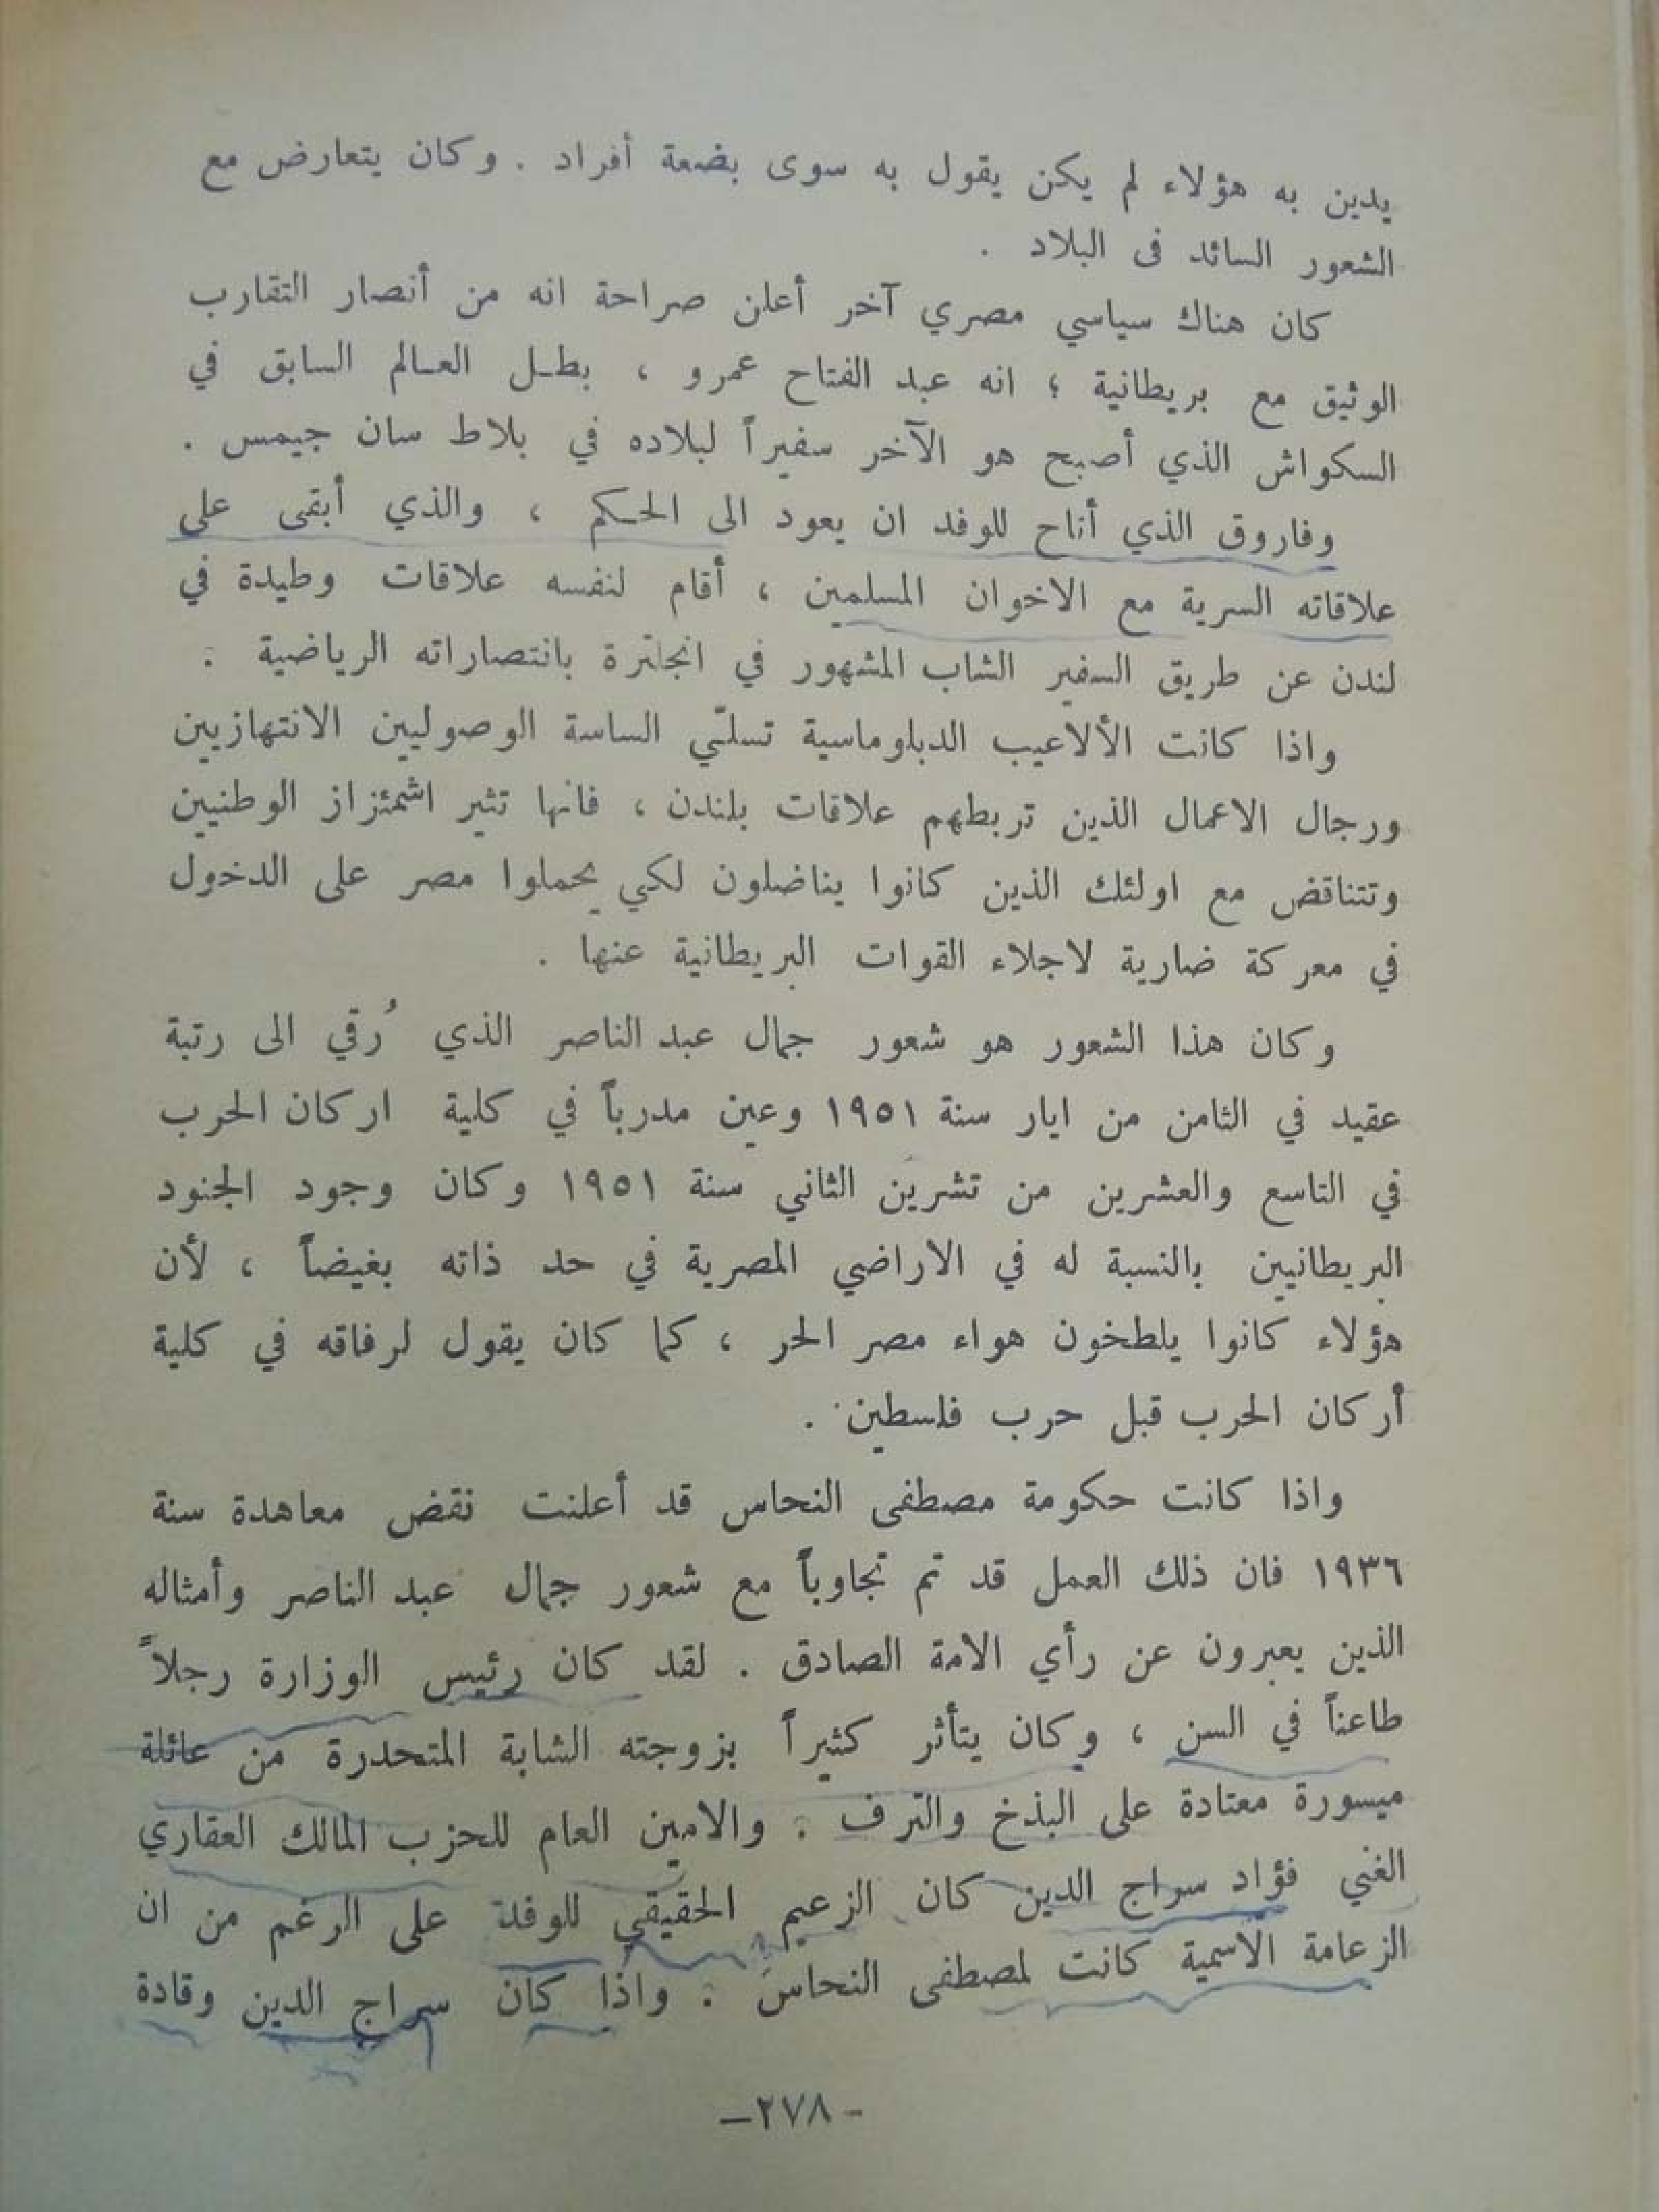 يدين به هؤلاء لم يكن يقول به سوى بضعة أفراد . وكان يتعارض مع
الشعور السائد فى البلاد .
كان هناك سياسي مصري آخر أعلن صراحة انه من أنصار التقارب
الوثيق مع بريطانية ؛ انه عبد الفتاح عمرو ، بطـل العـالم السابق في
السكواش الذي أصبح هو الآخر سفيراً لبلاده في بلاط سان جيمس .
وفاروق الذي أتاح للوفد ان يعود الى الحـكم ، والذي أبقى على
علاقاته السرية مع الاخوان المسلمين ، أقام لنفسه علاقات وطيدة في
لندن عن طريق السفير الشاب المشهور في انجلترة بانتصاراته الرياضية .
واذا كانت الألاعيب الدبلوماسية تسلّي الساسة الوصوليين الانتهازيين
ورجال الاعمال الذين تربطهم علاقات بلندن ، فانها تثير اشمئزاز الوطنيين
وتتناقض مع اولئك الذين كانوا يناضلون لكي يحملوا مصر على الدخول
في معركة ضارية لاجلاء القوات البريطانية عنها .
وكان هذا الشعور هو شعور جمال عبد الناصر الذي رُقي الى رتبة
عقيد في الثامن من ايار سنة ١٩٥١ وعين مدرباً في كلية اركان الحرب
في التاسع والعشرين من تشرين الثاني سنة ١٩٥١ وكان وجود الجنود
البريطانيين بالنسبة له في الاراضي المصرية في حد ذاته بغيضاً ، لأن
هؤلاء كانوا يلطخون هواء مصر الحر ، كما كان يقول لرفاقه في كلية
أركان الحرب قبل حرب فلسطين .
واذا كانت حكومة مصطفى النحاس قد أعلنت نقض معاهدة سنة
١٩٣٦ فان ذلك العمل قد تم تجاوباً مع شعور جمال عبد الناصر وأمثاله
الذين يعبرون عن رأي الامة الصادق . لقد كان رئيس الوزارة رجلاً
طاعناً في السن ، وكان يتأثر كثيراً بزوجته الشابة المتحدرة من عائلة
ميسورة معتادة على البذخ والترف . والامين العام للحزب المالك العقاري
الغني فؤاد سراج الدين كان الزعيم الحقيقي للوفد على الرغم من ان
الزعامة الاسمية كانت لمصطفى النحاس . واذا كان سراج الدين وقادة
-٢٧٨-